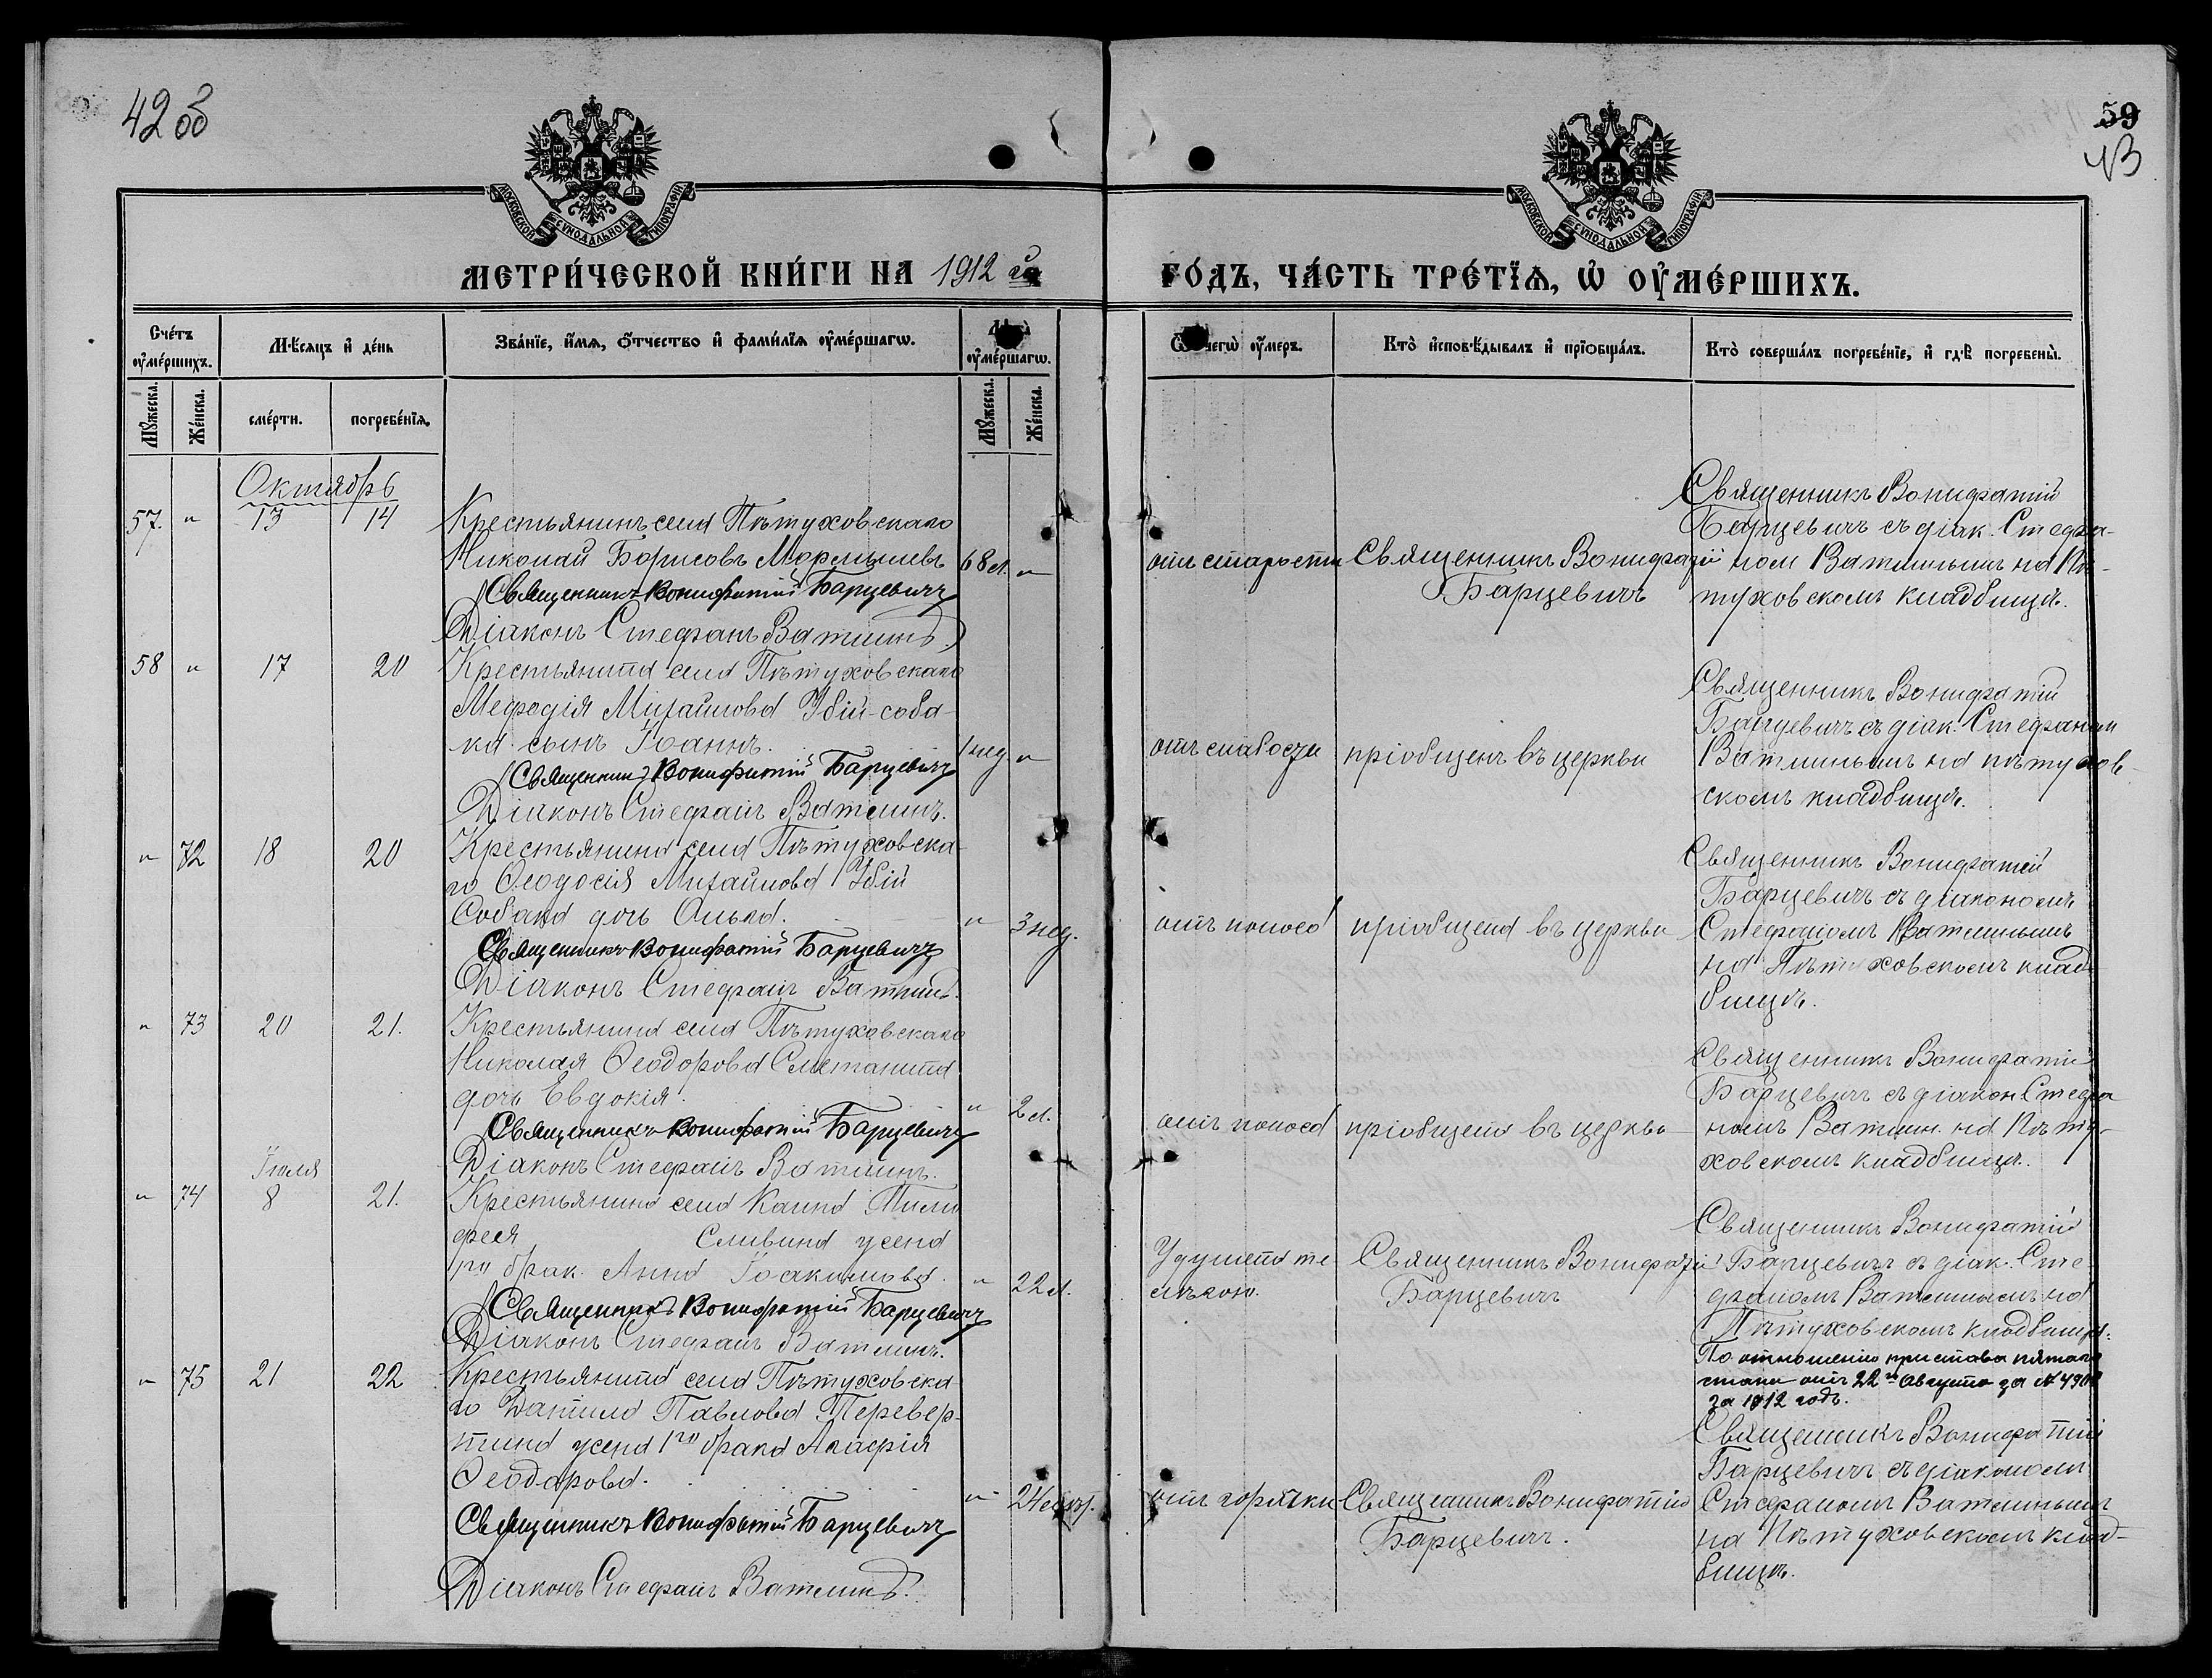 42 об
59
43
МОСКОВСКОЙ СѴНОДАЛЬНОЙ ТИПОГРАФІИ
МОСКОВСКОЙ СѴНОДАЛЬНОЙ ТИПОГРАФІИ
МЕТРИ́ЧЕСКОЙ КНИ́ГИ НА 1912 й
ГО́ДЪ, ЧА́СТЬ ТРЕ́ТЇѦ, Ѡ҆ ОУ҆МЕ́РШИХЪ.
Сче́тъ оу҆ме́ршихъ.
Мѣ́сяцъ и҆ де́нь
Зва́нїе, и҆́мѧ, ѻ҆́тчество и҆ фами́лїѧ оу҆ме́ршагѡ.
оу҆ме́ршагѡ.
чегѡ̀ оу҆́меръ.
Кто̀ и҆сповѣ́дывалъ и҆ прїѡбща́лъ.
Кто̀ соверша́лъ погребе́нїе, и҆ гдѣ̀ погребены̀.
Мꙋ́жеска.
Же́нска.
сме́рти.
погребе́нїѧ.
Мꙋ́жеска.
Же́нска.
Октябрь
57. " 13 14
Крестьянинъ села Пѣтуховскаго
Николай Борисовъ Мормышевъ 68 л. "
Священникъ Вонифатій Барцевичъ
Діаконъ Стефанъ Ватлинъ.
отъ старости
Священникъ Вонифатій
Барцевичъ
Священникъ Вонифатій
Барцевичъ съ діак. Стефа-
номъ Ватлинымъ на Пѣ-
туховскомъ кладбищѣ.
58 " 17 20
Крестьянина села Пѣтуховскаго
Мефодія Михайлова Убій-соба-
ка сынъ Іоаннъ. 1 нед. "
Священникъ Вонифатій Барцевичъ
Діаконъ Стефанъ Ватлинъ.
отъ слабости
пріобщенъ въ церкви
Священникъ Вонифатій
Барцевичъ съ діак. Стефаномъ
Ватлинымъ на пѣтухов-
скомъ кладбищѣ.
" 72 18 20
Крестьянина села Пѣтуховска-
го Ѳеодосія Михайлова Убій
Собака дочь Ольга. " 3 нед.
Священникъ Вонифатій Барцевичъ
Діаконъ Стефанъ Ватлинъ.
отъ поноса
пріобщена въ церкви
Священникъ Вонифатій
Барцевичъ съ діакономъ
Стефаномъ Ватлинымъ
на Пѣтуховскомъ клад-
бищѣ.
" 73 20 21.
Крестьянина села Пѣтуховскаго
Николая Ѳеодорова Сметанина
дочь Евдокія. " 2 л.
Священникъ Вонифатій Барцевичъ
Діаконъ Стефанъ Ватлинъ.
отъ поноса
пріобщена въ церкви
Священникъ Вонифатій
Барцевичъ съ діакон Стефа
номъ Ватлин. на Пѣту-
ховскомъ кладбищѣ.
Іюля
" 74 8 21.
Крестьянина села
фея Сливина жена
1го брак. Анна Іоакимова. " 22 л.
Священникъ Вонифатій Барцевичъ
Діаконъ Стефанъ Ватлинъ.
Священникъ Вонифатій
Барцевичъ
Священникъ Вонифатій
Барцевичъ съ діак. Сте
фаномъ Ватлинымъ на
Пѣтуховскомъ кладбищѣ.
По отношенію пристава пятаго
стана отъ 22го Августа за №
за 1912 годъ.
" 75 21 22
Крестьянина села Пѣтуховска-
го Данила Павлова Перевер-
жена 1го брака Агафія
Ѳеодорова. " 24
Священникъ Вонифатій Барцевичъ
Діаконъ Стефанъ Ватлинъ.
отъ горячки
Священникъ Вонифатій
Барцевичъ.
Священникъ Вонифатій
Барцевичъ съ діакономъ
Стефаномъ Ватлинымъ
на Пѣтуховскомъ клад-
бищѣ.